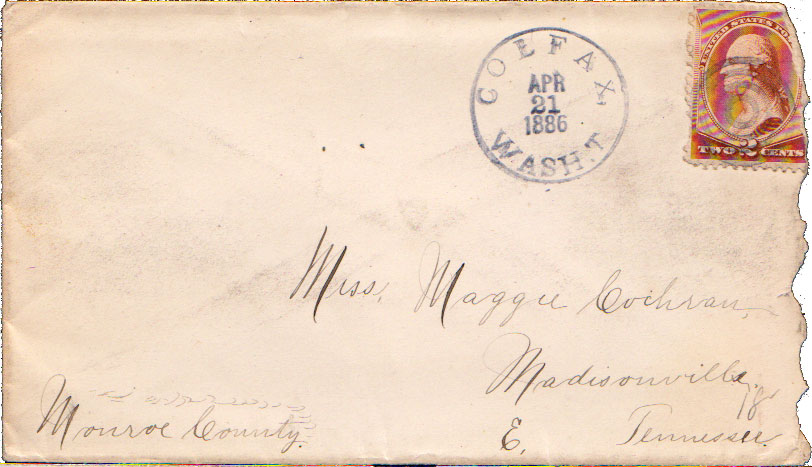 COLFAX,
APR
21
1886
WASH.T.
UNITED STATES PO
TWO 2 CENTS
Miss. Maggie Cochran,
Madisonville,
Monroe County.
E. Tennessee